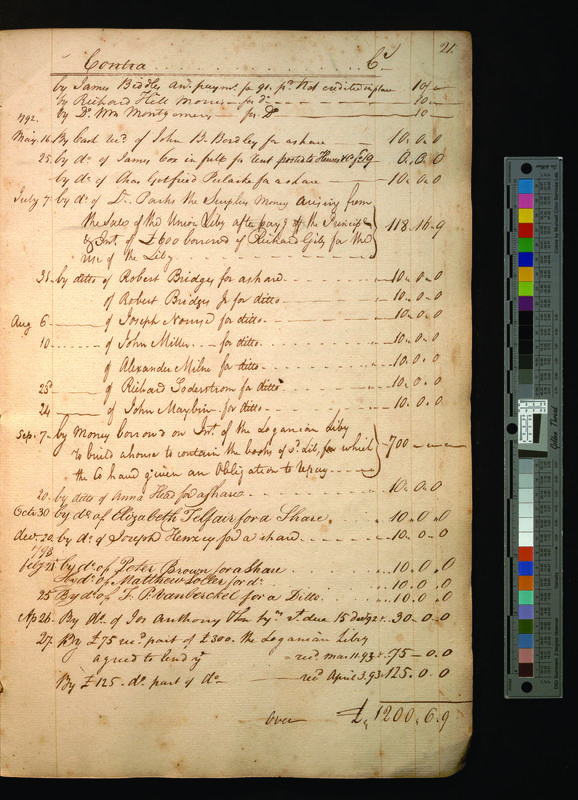 21.
Contra Cr
by James Biddles an. paymt. for 91. pr. Not credited in place 10 "
by Richard Hill Morris for do 10
by Dr. Wm Montgomery for Do 10
1792.
May 16 By Cash recd. of John B. Bordley for a share 10. 0. 0
25 by do. of James Cox in full for 0. 0. 0
by do. of Chas Gotfried Paleske for a share 10. 0. 0
July 7 by do. of Dr. Parke the Surplus Money arising from
the Sales of the Union Liby after payg. off the Principl
& Int. of £600 borrowed of Richard Gily for the
use of the Liby 118. 16. 9
31 by ditto of Robert Bridges for a share 10. 0. 0
of Robert Bridges Jr for ditto 10. 0. 0
Aug 6 of Joseph Nourse for ditto 10. 0. 0
10 of John Miller for ditto 10. 0. 0
of Alexander Milne for ditto 10. 0. 0
23d of Richard Soderstrom for ditto 10. 0. 0
24 of John Maybin for ditto 10. 0. 0
Sep. 7 by Money borrowd on Int. of the Loganian Liby
to build a house to contain the books of sd. Lib, for which
the Co hand given an Obligation to repay 700
20. by ditto of Anna Head for a share 10. 0. 0
Octr 30 by do. of Elizabeth Telfair for a Share. 10. 0. 0
Decr. 20 by do. of Joseph Henzey for a share 10. 0. 0
1793
feby 21 by do. of Peter Brown for a Share 10. 0. 0
By do. of Matthew Soller for do. 10. 0. 0
25 By do. of F. P. Vanberckel for a Ditto 10. 0. 0
Ap 26 By do. of Jos Anthony Int. due 15 30. 0. 0
27 By £75 recd. part of £300. the Loganian Liby
agreed to lend ye recd. Mar. 11. 93 75 - 0. 0
By £125. do. part of do recd April 3. 93 125. 0. 0
Over £. 1200. 6. 9